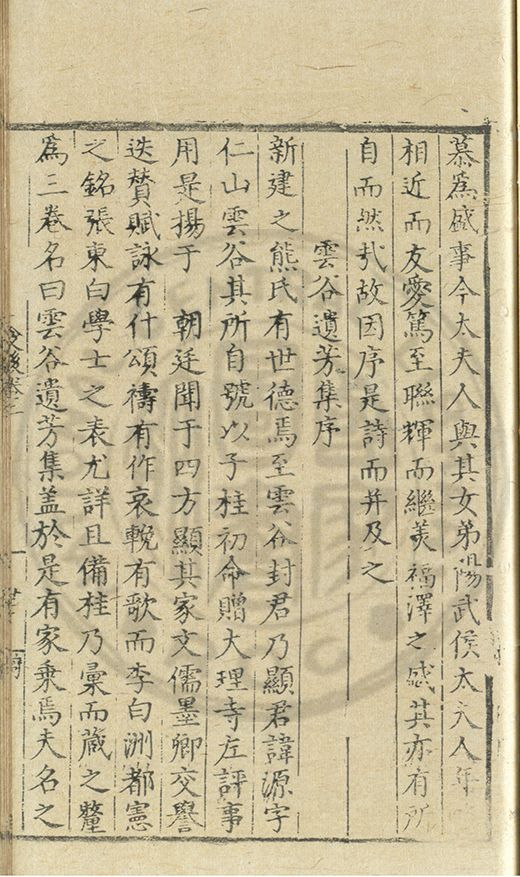 慕爲盛事今太夫人與其女弟陽武侯太夫人年
相近而友愛篤至聯輝而繼美福澤之盛其亦有所
自而然㢤故因序是詩而并及之
雲谷遺芳集序
新建之熊氏有世德焉至雲谷封君乃顯君諱源字
仁山雲谷其所自號以子桂初命贈大理寺左評事
用是揚于 朝廷聞于四方顯其家文儒墨卿交譽
迭賛賦詠有什頌禱有作哀輓有歌而李白洲都憲
之銘張東白學士之表尤詳且備桂乃彙而蔵之釐
爲三卷名曰雲谷遺芳集盖於是有家乗焉夫名之